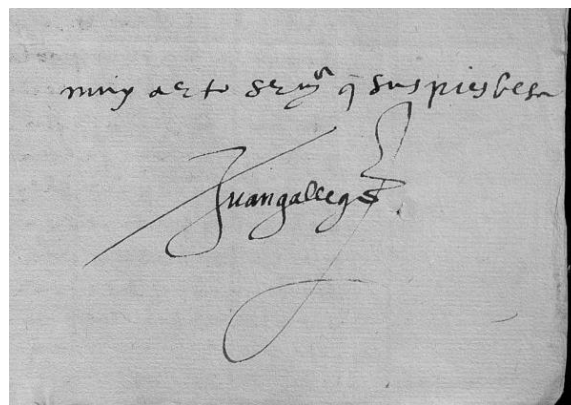 muy açto serui.ᵒʳ q̄ sus pies besa
Juan gallego